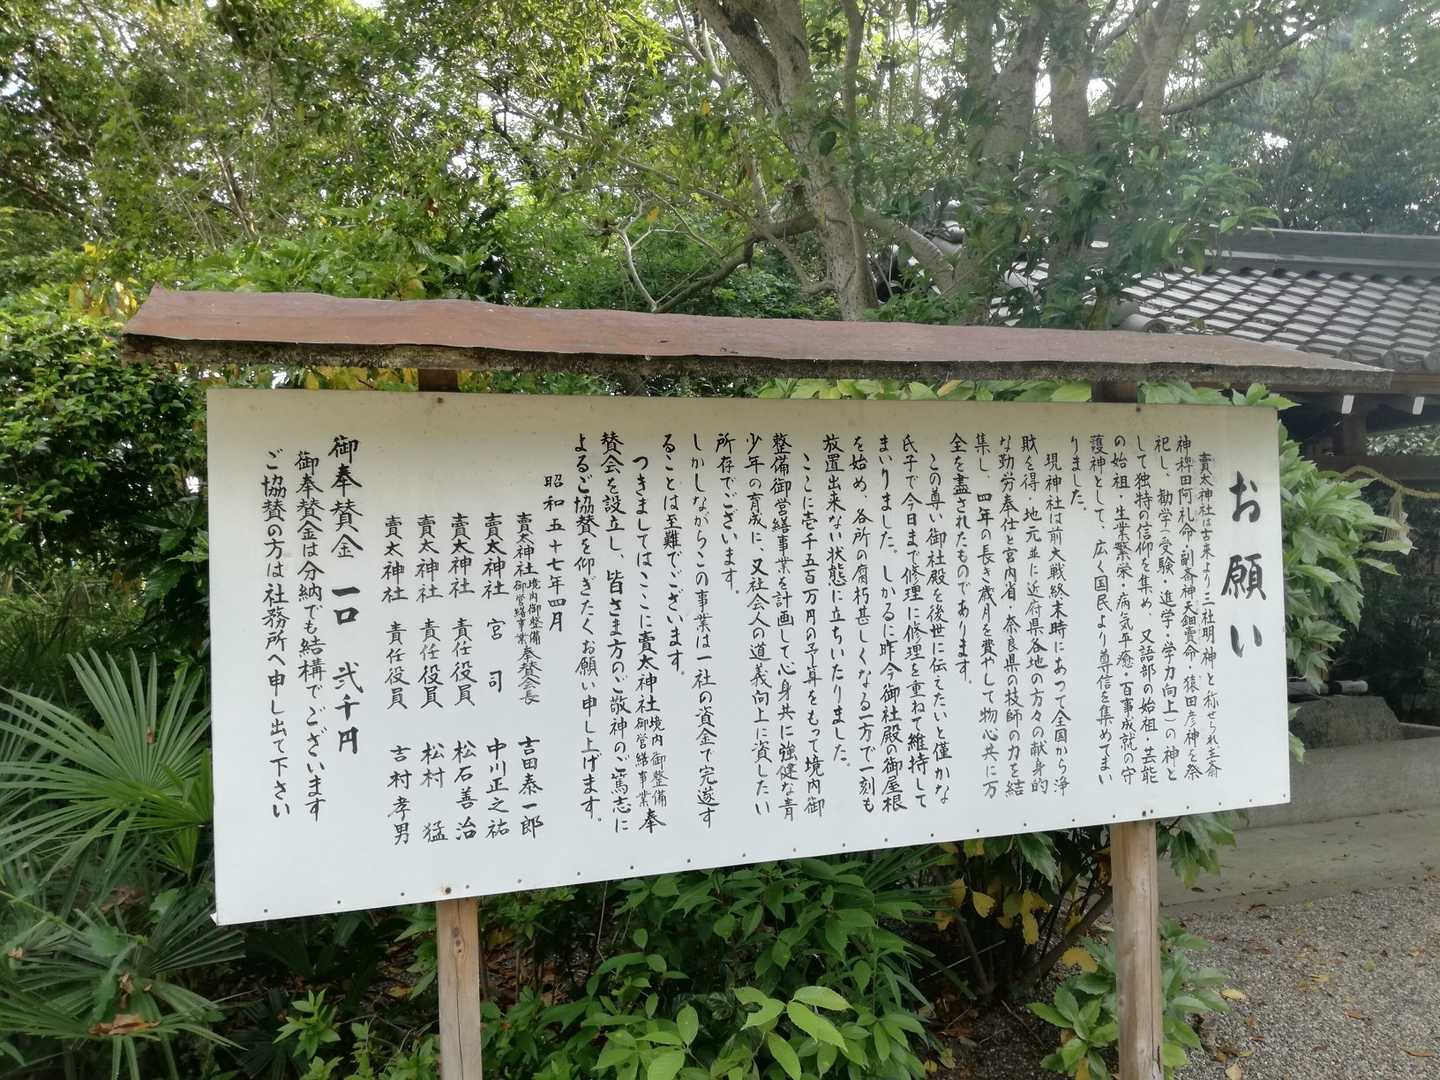 お願い
賣太神社は古来より三社明神と称せられ主斎
神稗田阿礼命・副斎神天鈿賣命・猿田彦神を祭
祀し、勧学(受験・進学・学力向上)の神と
して独特の信仰を集め、又語部の始祖・芸能
の始祖・生業繁栄・病気平癒・百事成就の守
護神として、広く国民より尊信を集めてまい
りました。
現神社は前大戦終末時にあつて全国から浄
財を得、地元並に近府県各地の方々の献身的
な勤労奉仕と宮内省・奈良県の技師の力を結
集し、四年の長き歳月を費やして物心共に万
全を盡されたものであります。
この尊い御社殿を後世に伝てたいと僅かな
氏子で今日まで修理に修理を重ねて維持して
まいりました。しかるに昨今御社殿の御屋根
を始め、各所の腐朽甚しくなる一方で一刻も
放置出来ない状態に立ちいたりました。
ここに壱千五百万円の予算をもって境内御
整備御営繕事業を計画して心身共に強健な青
少年の育成に、又社会人の道義向上に資したい
所存でございます。
しかしながらこの事業は一社の資金で完遂す
ることは至難でございます。
つきましてはここに賣太神社境内御整備御営繕事業奉
賛会を設立し、皆さま方のご敬神のご篤志に
よるご協賛を仰ぎたくお願い申し上げます。
昭和五十七年四月
賣太神社境内御整備御営繕事業奉賛会長 吉田泰一郎
賣太神社 宮司 中川正之祐
賣太神社 責任役員 松石善治
賣太神社 責任役員 松村猛
賣太神社 責任役員 吉村孝男
御奉賛金 一口 弐千円
御奉賛金は分納でも結構でございます
ご協賛の方は社務所へ申し出て下さい